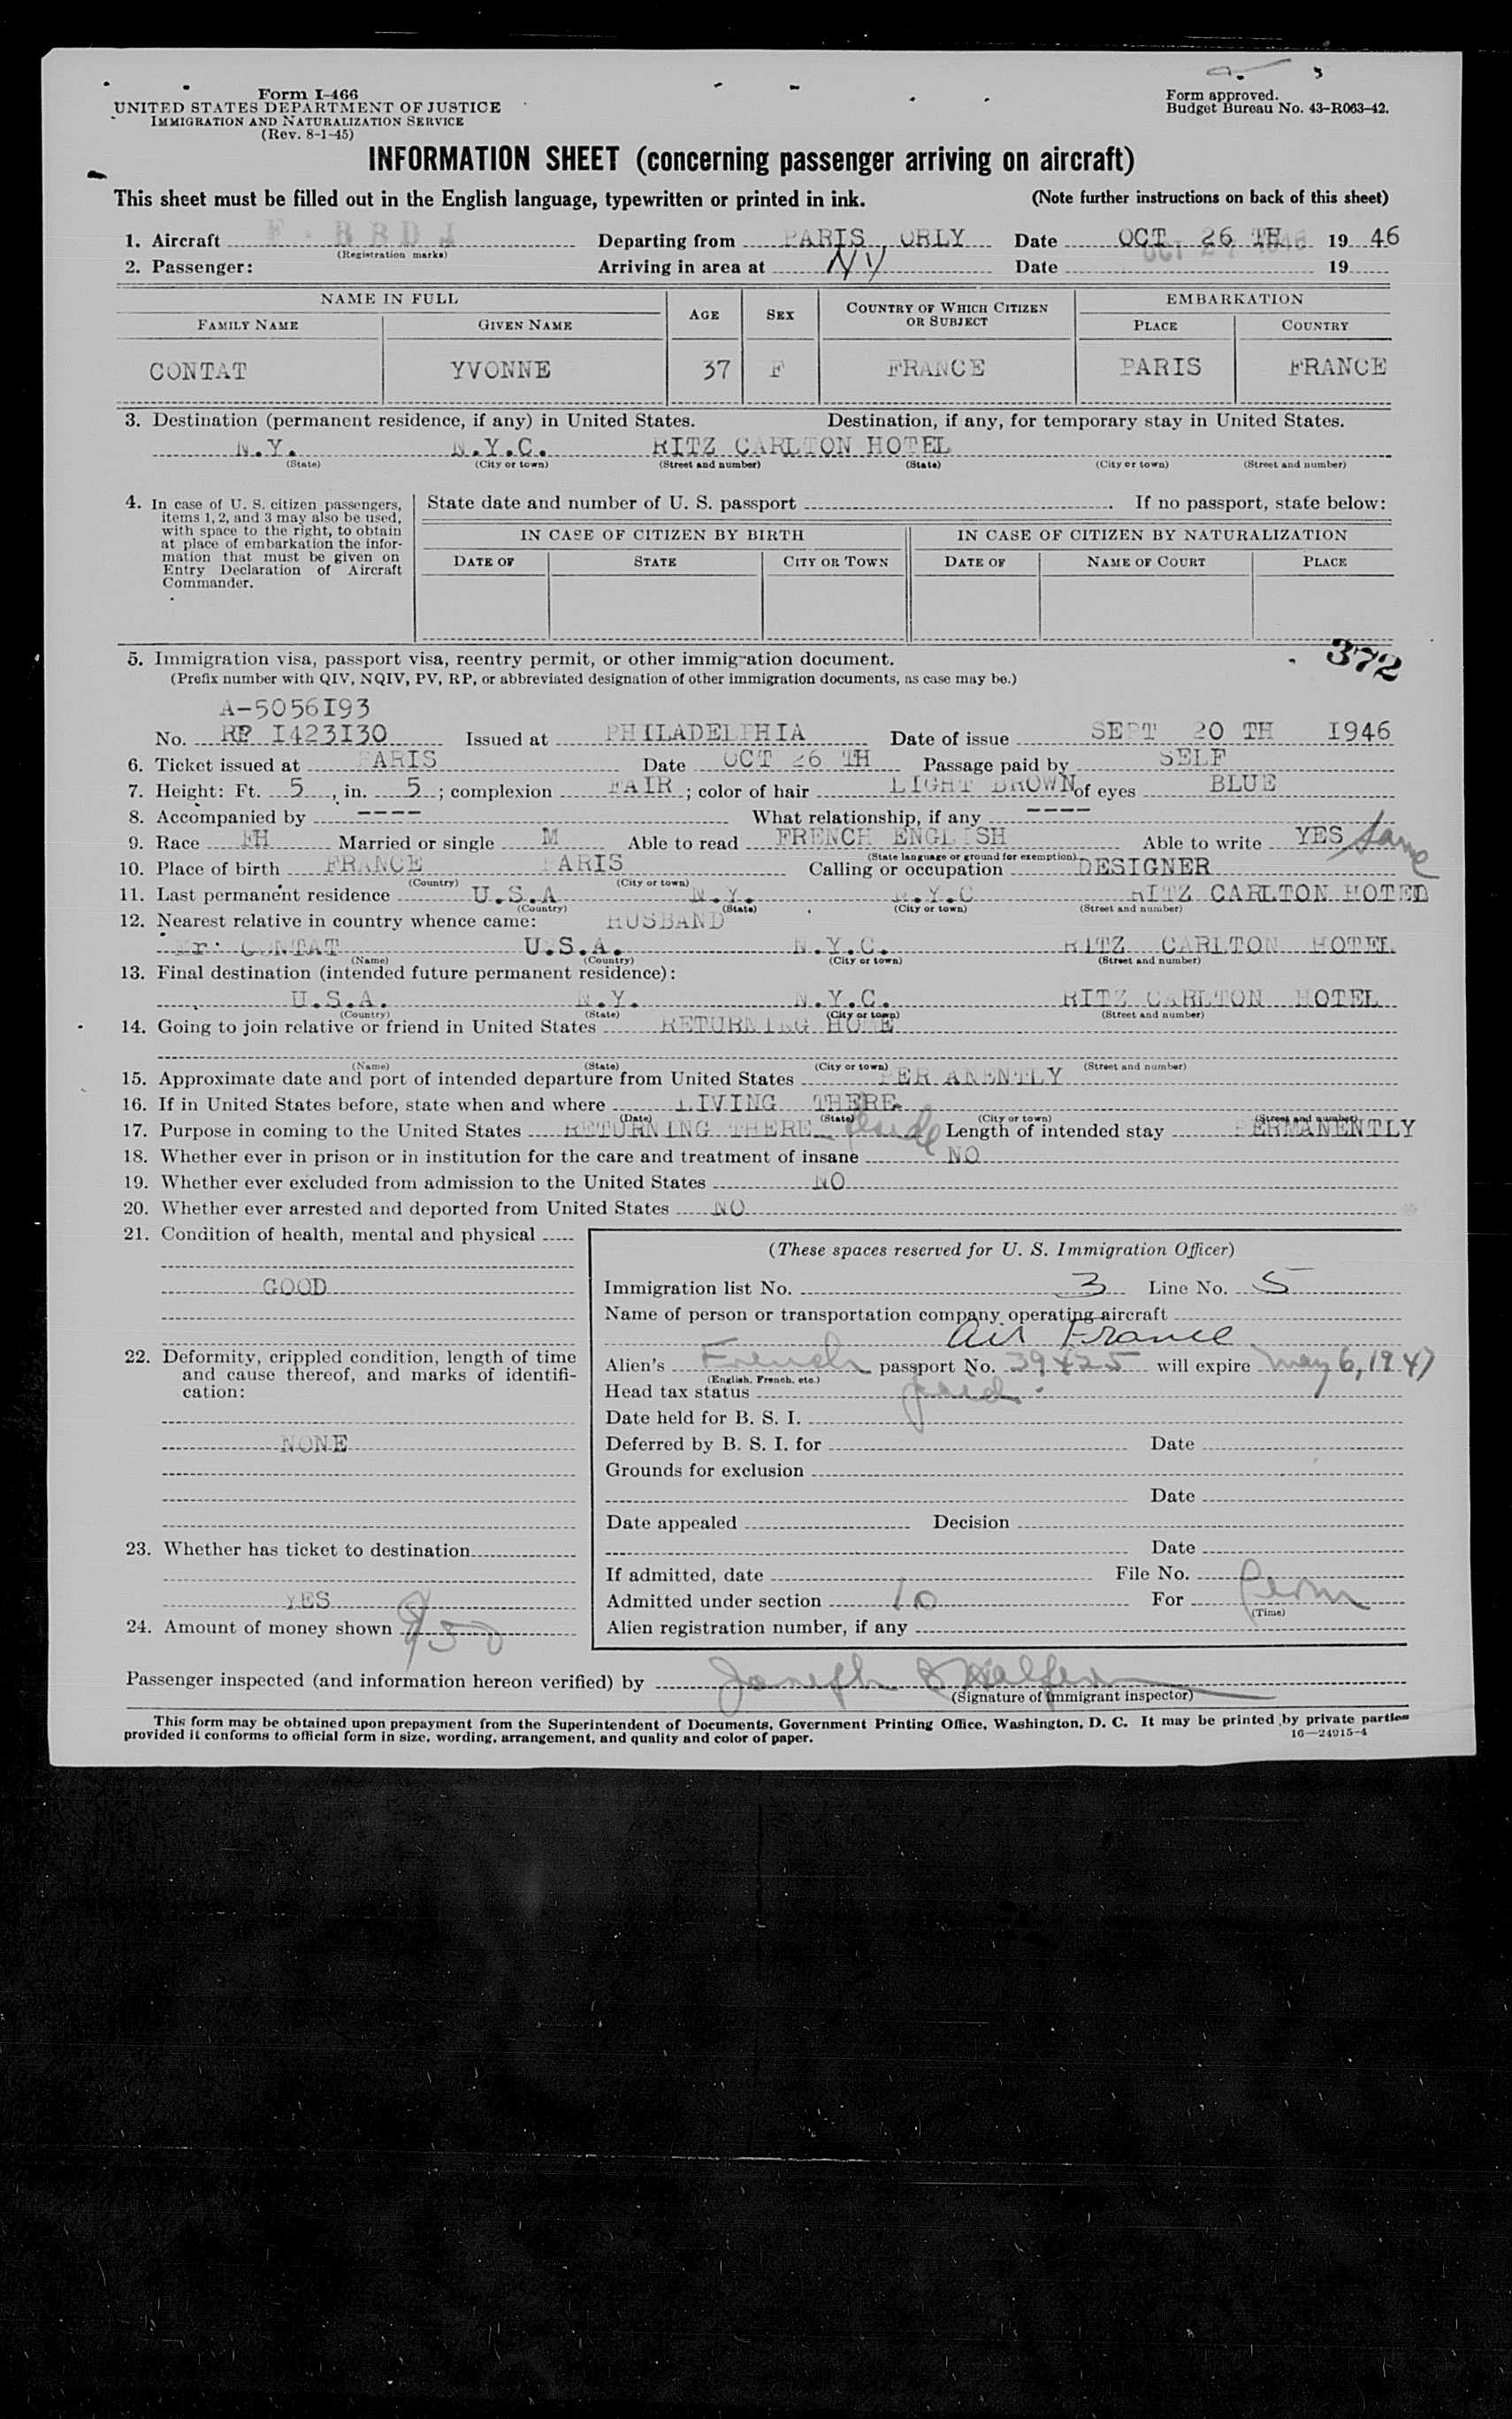 Form I-466
UNITED STATES DEPARTMENT OF JUSTICE
IMMIGRATION AND NATURALIZATION SERVICE
(Rev. 8-1-45)
Form approved.
Budget Bureau No. 43-R063-42.
INFORMATION SHEET (concerning passenger arriving on aircraft)
This sheet must be filled out in the English language, typewritten or printed in ink. (Note further instructions on back of this sheet)
1. Aircraft F-BBDJ Departing from PARIS, ORLY Date OCT 26 TH 1946
(Registration marks)
2. Passenger: Arriving in area at NY Date 19
NAME IN FULL AGE SEX COUNTRY OF WHICH CITIZEN OR SUBJECT EMBARKATION
FAMILY NAME GIVEN NAME PLACE COUNTRY
CONTAT YVONNE 37 F FRANCE PARIS FRANCE
3. Destination (permanent residence, if any) in United States. Destination, if any, for temporary stay in United States.
N.Y. N.Y.C. RITZ CARLTON HOTEL
(State) (City or town) (Street and number) (State) (City or town) (Street and number)
4. In case of U. S. citizen passengers, items 1, 2, and 3 may also be used, with space to the right, to obtain at place of embarkation the information that must be given on Entry Declaration of Aircraft Commander.
State date and number of U. S. passport If no passport, state below:
IN CASE OF CITIZEN BY BIRTH IN CASE OF CITIZEN BY NATURALIZATION
DATE OF STATE CITY OR TOWN DATE OF NAME OF COURT PLACE
372
5. Immigration visa, passport visa, reentry permit, or other immigration document.
(Prefix number with QIV, NQIV, PV, RP, or abbreviated designation of other immigration documents, as case may be.)
A-5056I93
No. RP I423I30 Issued at PHILADELPHIA Date of issue SEPT 20 TH I946
6. Ticket issued at PARIS Date OCT 26 TH Passage paid by SELF
7. Height: Ft. 5, in. 5; complexion FAIR; color of hair LIGHT BROWN of eyes BLUE
8. Accompanied by ---- What relationship, if any ----
9. Race FH Married or single M Able to read FRENCH ENGLISH Able to write YES same
(State language or ground for exemption)
10. Place of birth FRANCE PARIS Calling or occupation DESIGNER
(Country) (City or town)
11. Last permanent residence U.S.A N.Y. N.Y.C RITZ CARLTON HOTEL
(Country) (State) (City or town) (Street and number)
12. Nearest relative in country whence came: HUSBAND
Mr: CONTAT U.S.A. N.Y.C. RITZ CARLTON HOTEL
(Name) (Country) (City or town) (Street and number)
13. Final destination (intended future permanent residence):
U.S.A. N.Y. N.Y.C. RITZ CARLTON HOTEL
(Country) (State) (City or town) (Street and number)
14. Going to join relative or friend in United States RETURNING HOME
(Name) (State) (City or town) (Street and number)
15. Approximate date and port of intended departure from United States PER ANENTLY
16. If in United States before, state when and where LIVING THERE
(Date) (State) (City or town) (Street and number)
17. Purpose in coming to the United States RETURNING THERE Length of intended stay PERMANENTLY
18. Whether ever in prison or in institution for the care and treatment of insane NO
19. Whether ever excluded from admission to the United States NO
20. Whether ever arrested and deported from United States NO
21. Condition of health, mental and physical
GOOD
22. Deformity, crippled condition, length of time and cause thereof, and marks of identification:
NONE
23. Whether has ticket to destination
YES
24. Amount of money shown
(These spaces reserved for U. S. Immigration Officer)
Immigration list No. 3 Line No. 5
Name of person or transportation company operating aircraft
Air France
Alien's French passport No. 39425 will expire May 6, 1947
(English, French, etc.)
Head tax status paid.
Date held for B. S. I.
Deferred by B. S. I. for Date
Grounds for exclusion
Date
Date appealed Decision
Date
If admitted, date File No.
Admitted under section 10 For Perm
(Time)
Alien registration number, if any
Passenger inspected (and information hereon verified) by Joseph
(Signature of immigrant inspector)
This form may be obtained upon prepayment from the Superintendent of Documents, Government Printing Office, Washington, D. C. It may be printed by private parties
provided it conforms to official form in size, wording, arrangement, and quality and color of paper.
16—24915-4